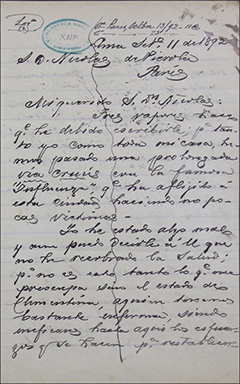 Lima Set. 11 de 1892
S. D. Nicolas de Pierola
Paris
Mi querido S. D. Nicolas:
Tres vapores hace
q. he debido escribirle, p. tan-
to yo como toda mi casa, he-
mos pasado una prolongada
via crucis con la famosa
Influenza q. ha aflijido á
esta ciudad haciendo no po-
cas víctimas.
Yo he estado algo mal
y aun puedo decirle á U. que
no he recobrado la salud;
p. no es esto tanto lo q. me
preocupa sin el estado de
Clementina á quien tenemos
bastante enferma, siendo
ineficaces hasta aqui los esfuer-
zos q. se hacen p. restablecer